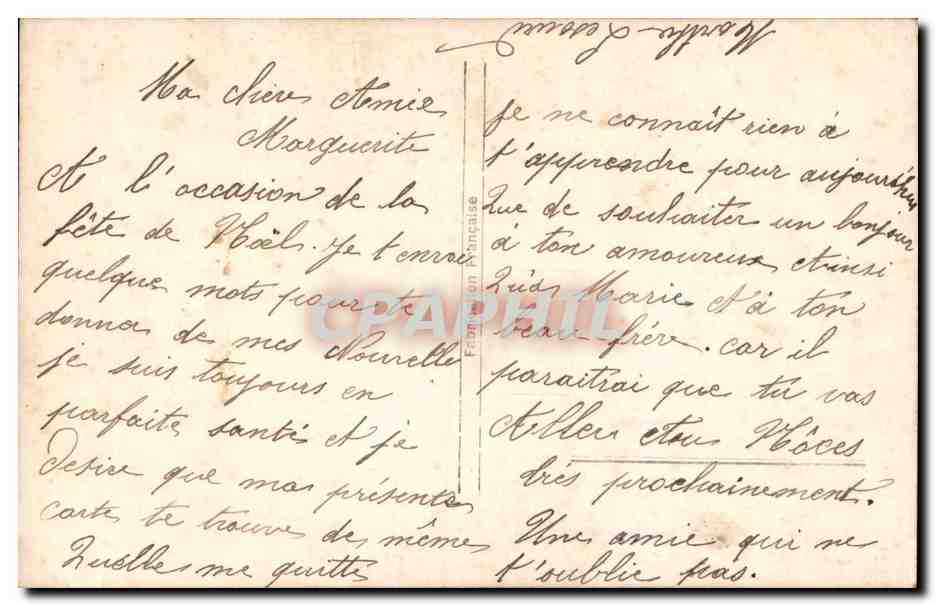 Ma chère Amie
Marguerite
A l'occasion de la
fête de Noël. Je t'envoie
quelque mots pour te
donner de mes Nouvelle
je suis toujours en
parfaite santé et je
desire que ma présente
carte te trouve de même
Quelle me quitte
Je ne connaît rien à
t'apprendre pour aujourd'hui
Que de souhaiter un bonjour
à ton amoureux Ainsi
Qu'à Marie et à ton
beau frére. car il
paraitrai que tu vas
Aller Nôces
trés prochainement.
Une amie qui ne
t'oublie pas.
Marthe
Fabrication Française
CPAPHIL